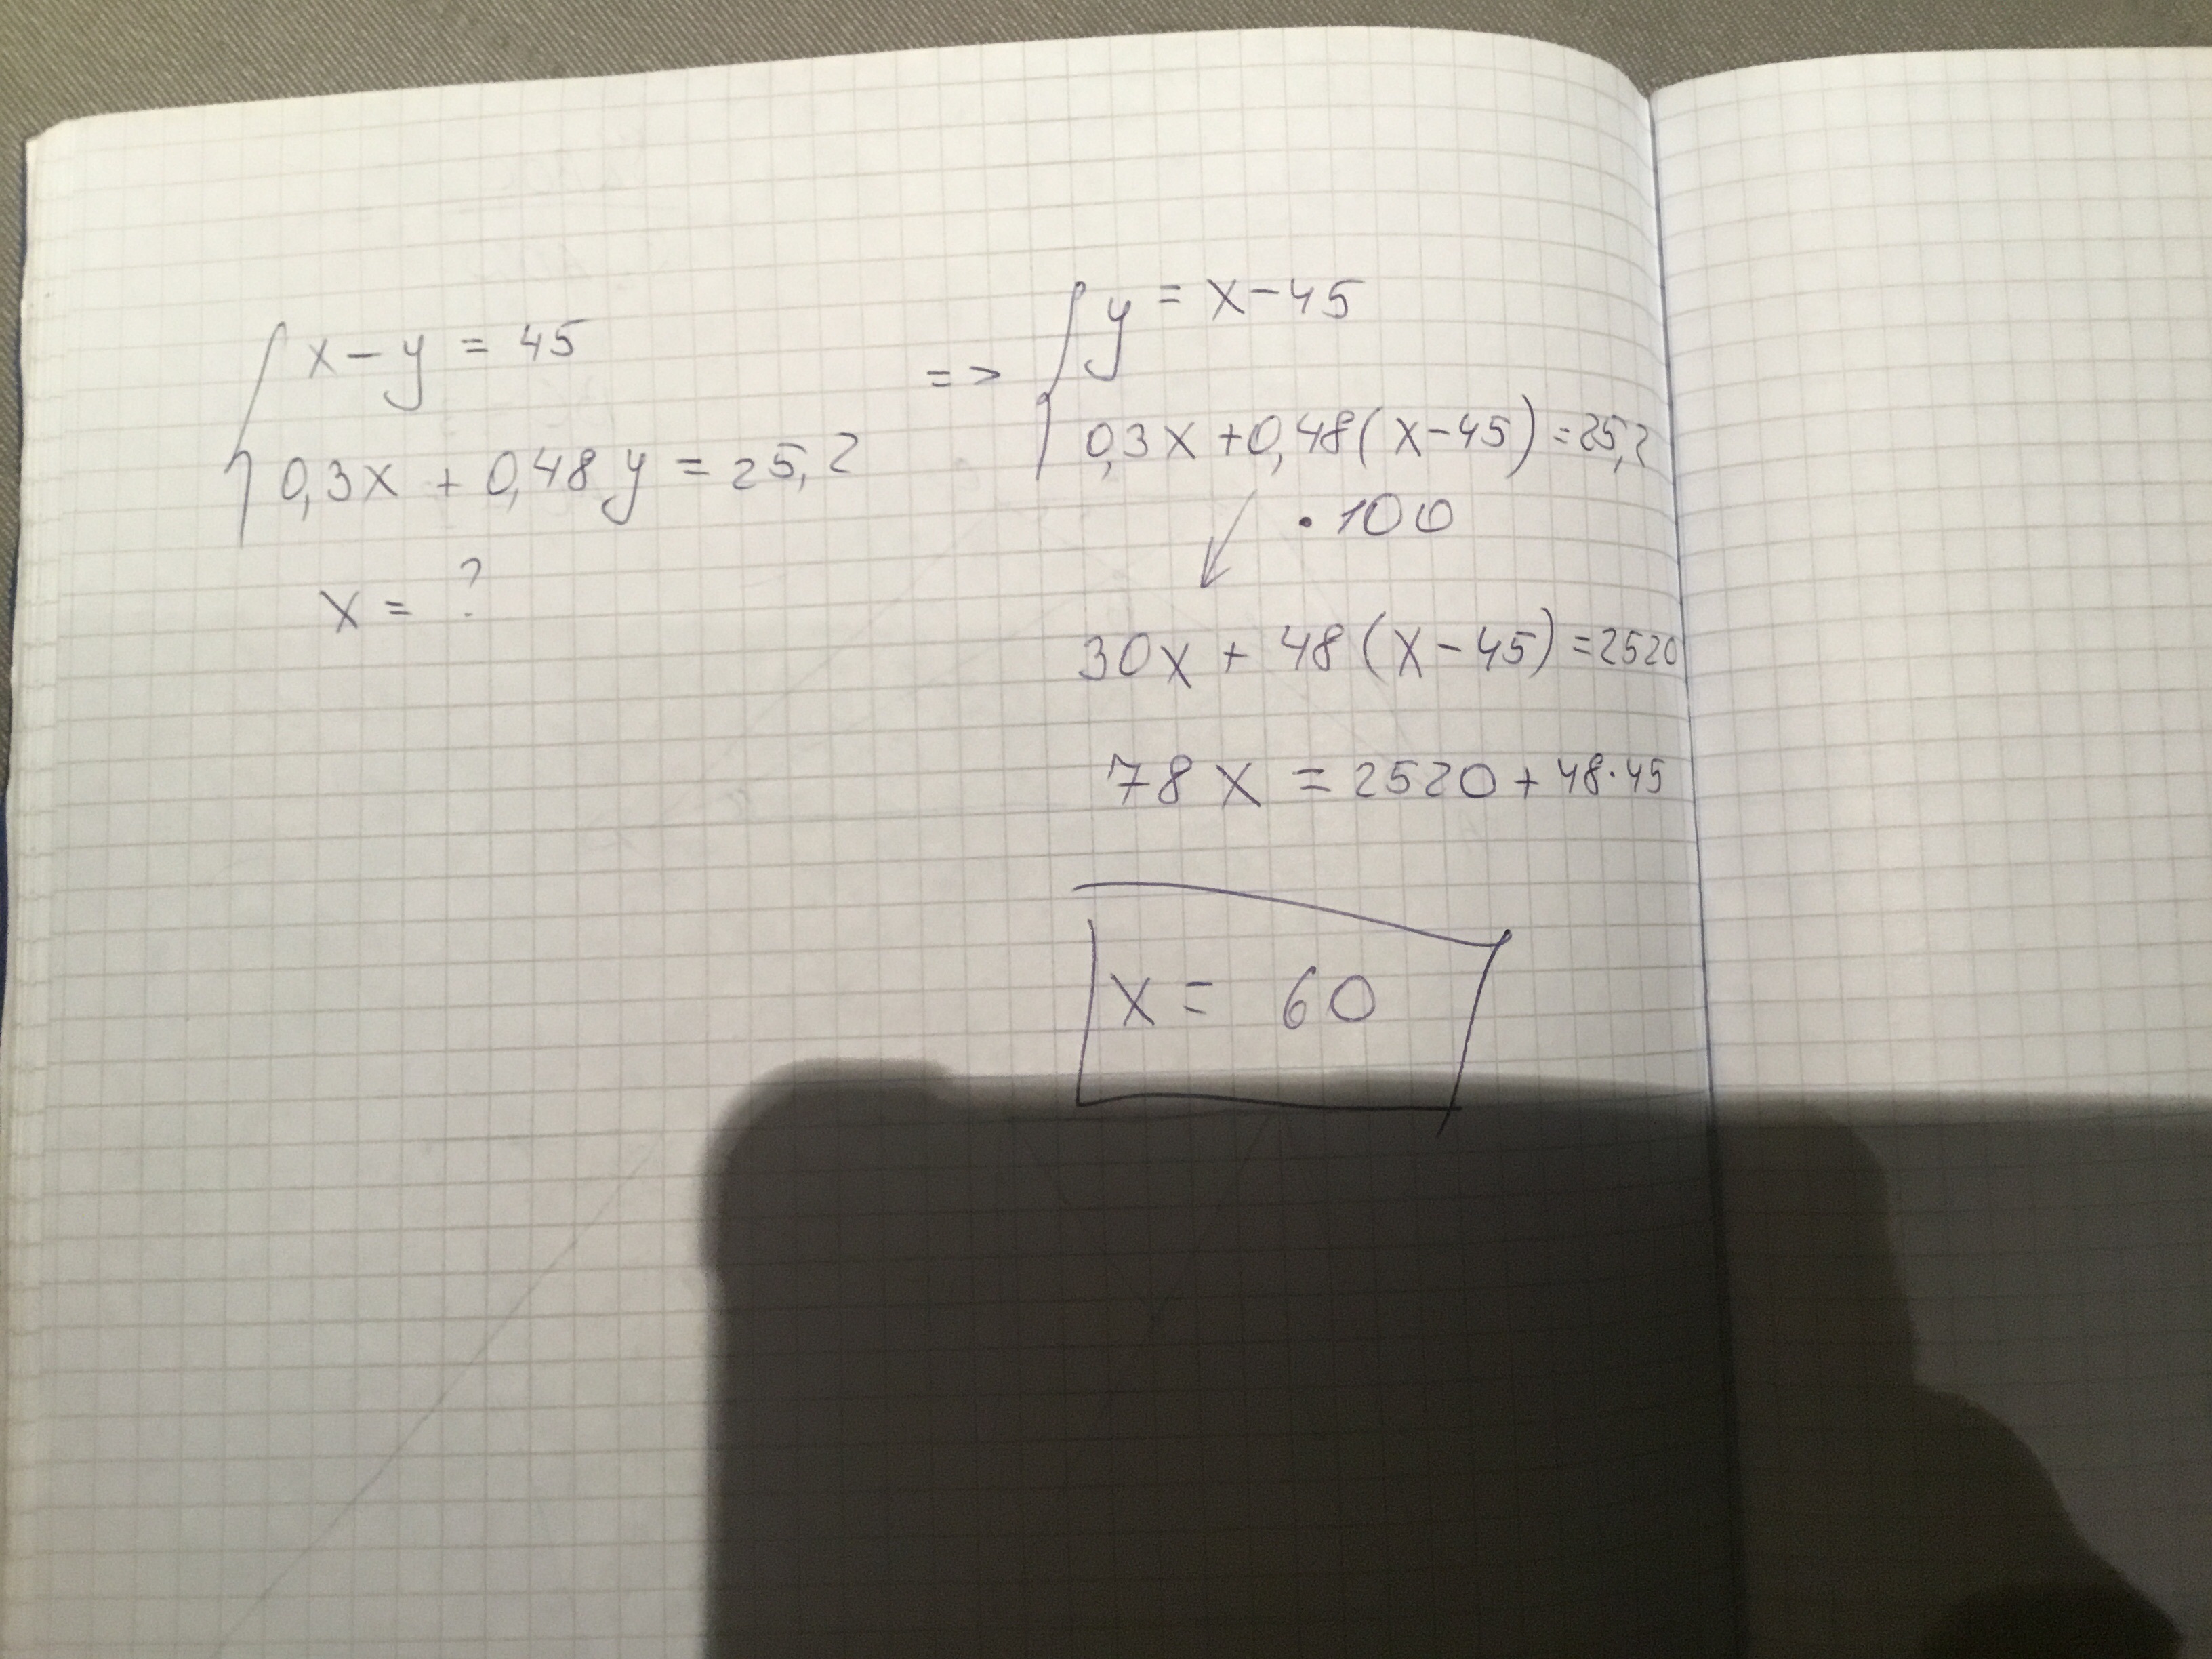 x - y = 45
0,3x + 0,48y = 25,2
x = ?
=> y = x - 45
0,3x + 0,48(x - 45) = 25,2
· 100
30x + 48(x - 45) = 2520
78x = 2520 + 48·45
x = 60